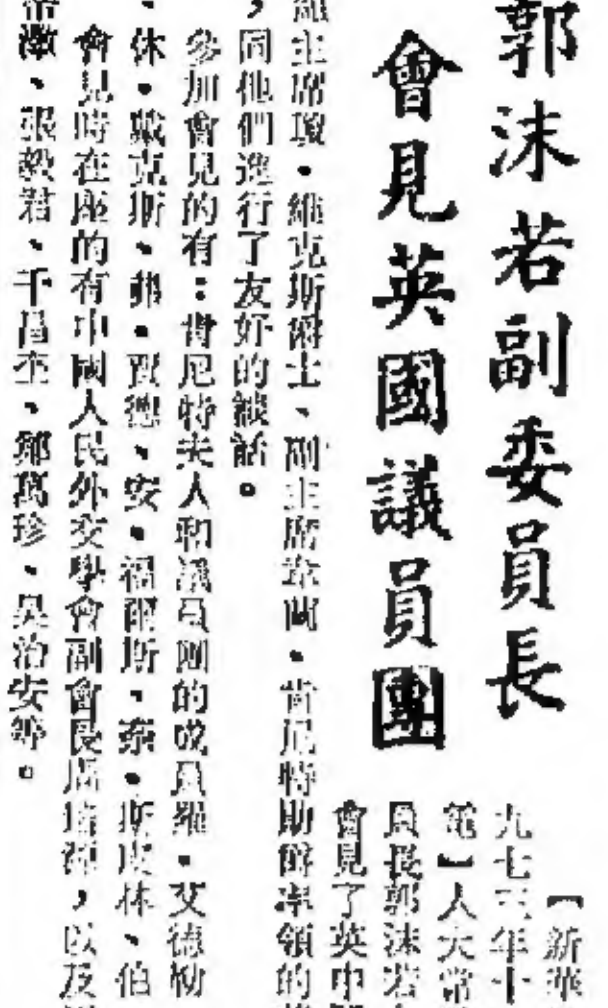 郭沫若副委員長
會見英國議員團
【新華
九七三年十
電】人大常
員長郭沫若
會見了英中
主席瓊·維克斯爵士、副主席韋蘭·肯尼特勛爵率領的
，同他們進行了友好的談話。
參加會見的有：肯尼特夫人和議員團的成員羅·艾德勒
、休·戴克斯、弗·賈德、安·福爾斯、奈·斯庇林、伯
會見時在座的有中國人民外交學會副會長周培源，以及
、張毅君、于昌、鄭萬珍、吳治安等。